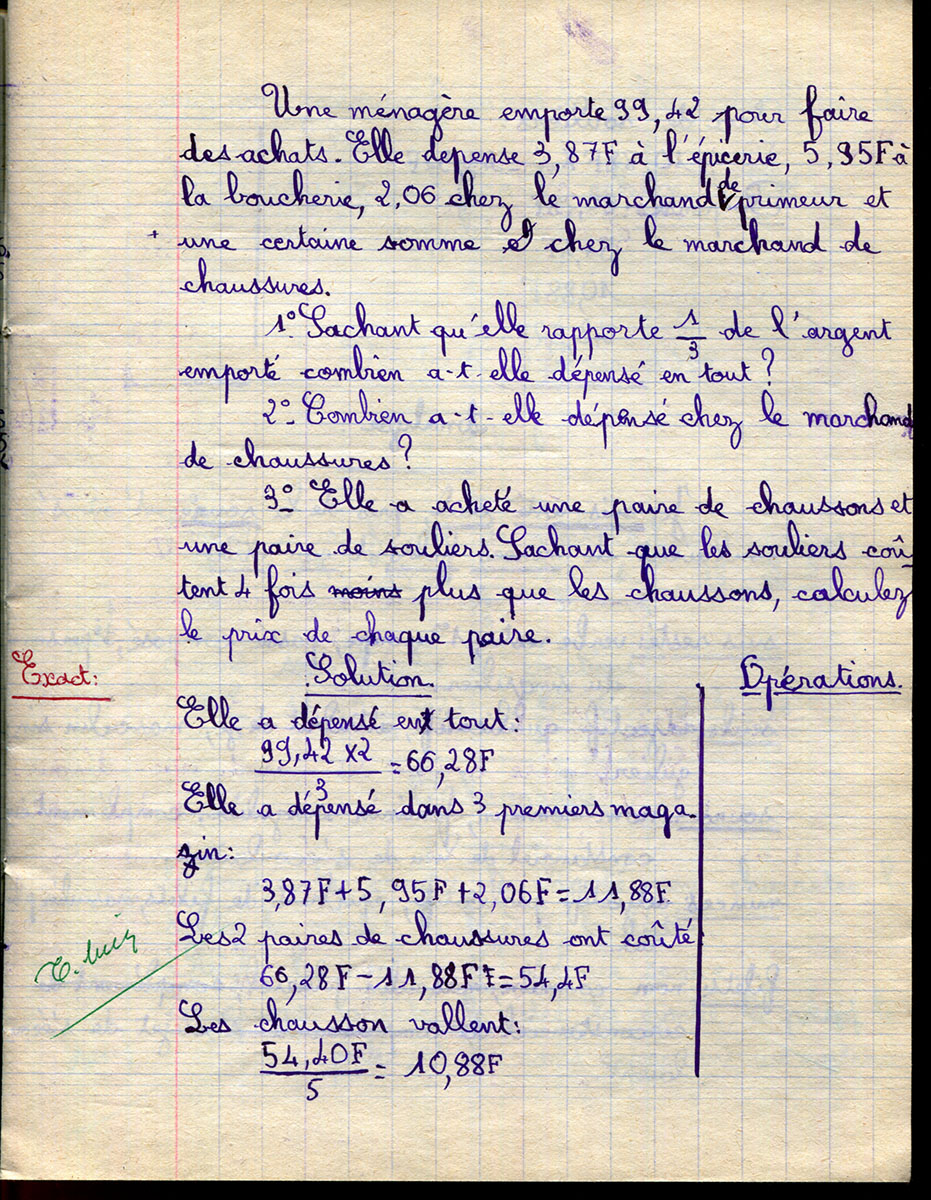 Une ménagère emporte 99,42 pour faire
des achats. Elle depense 3,87F à l'épicerie, 5,95F à
la boucherie, 2,06 chez le marchand de primeur et
+ une certaine somme chez le marchand de
chaussures.
1° Sachant qu'elle rapporte 1/3 de l'argent
emporté combien a-t-elle dépensé en tout ?
2° Combien a-t-elle dépensé chez le marchand
de chaussures ?
3° Elle a acheté une paire de chaussons et
une paire de souliers. Sachant que les souliers coû-
tent 4 fois moins plus que les chaussons, calculez
le prix de chaque paire.
Exact: Solution. Opérations.
Elle a dépensé en tout :
99,42 x2 / 3 = 66,28F
Elle a dépensé dans 3 premiers maga-
zin :
3,87F + 5,95F + 2,06F = 11,88F
Les 2 paires de chaussures ont coûté
66,28F - 11,88F = 54,4F
T. bien
Les chausson vallent :
54,40F / 5 = 10,88F